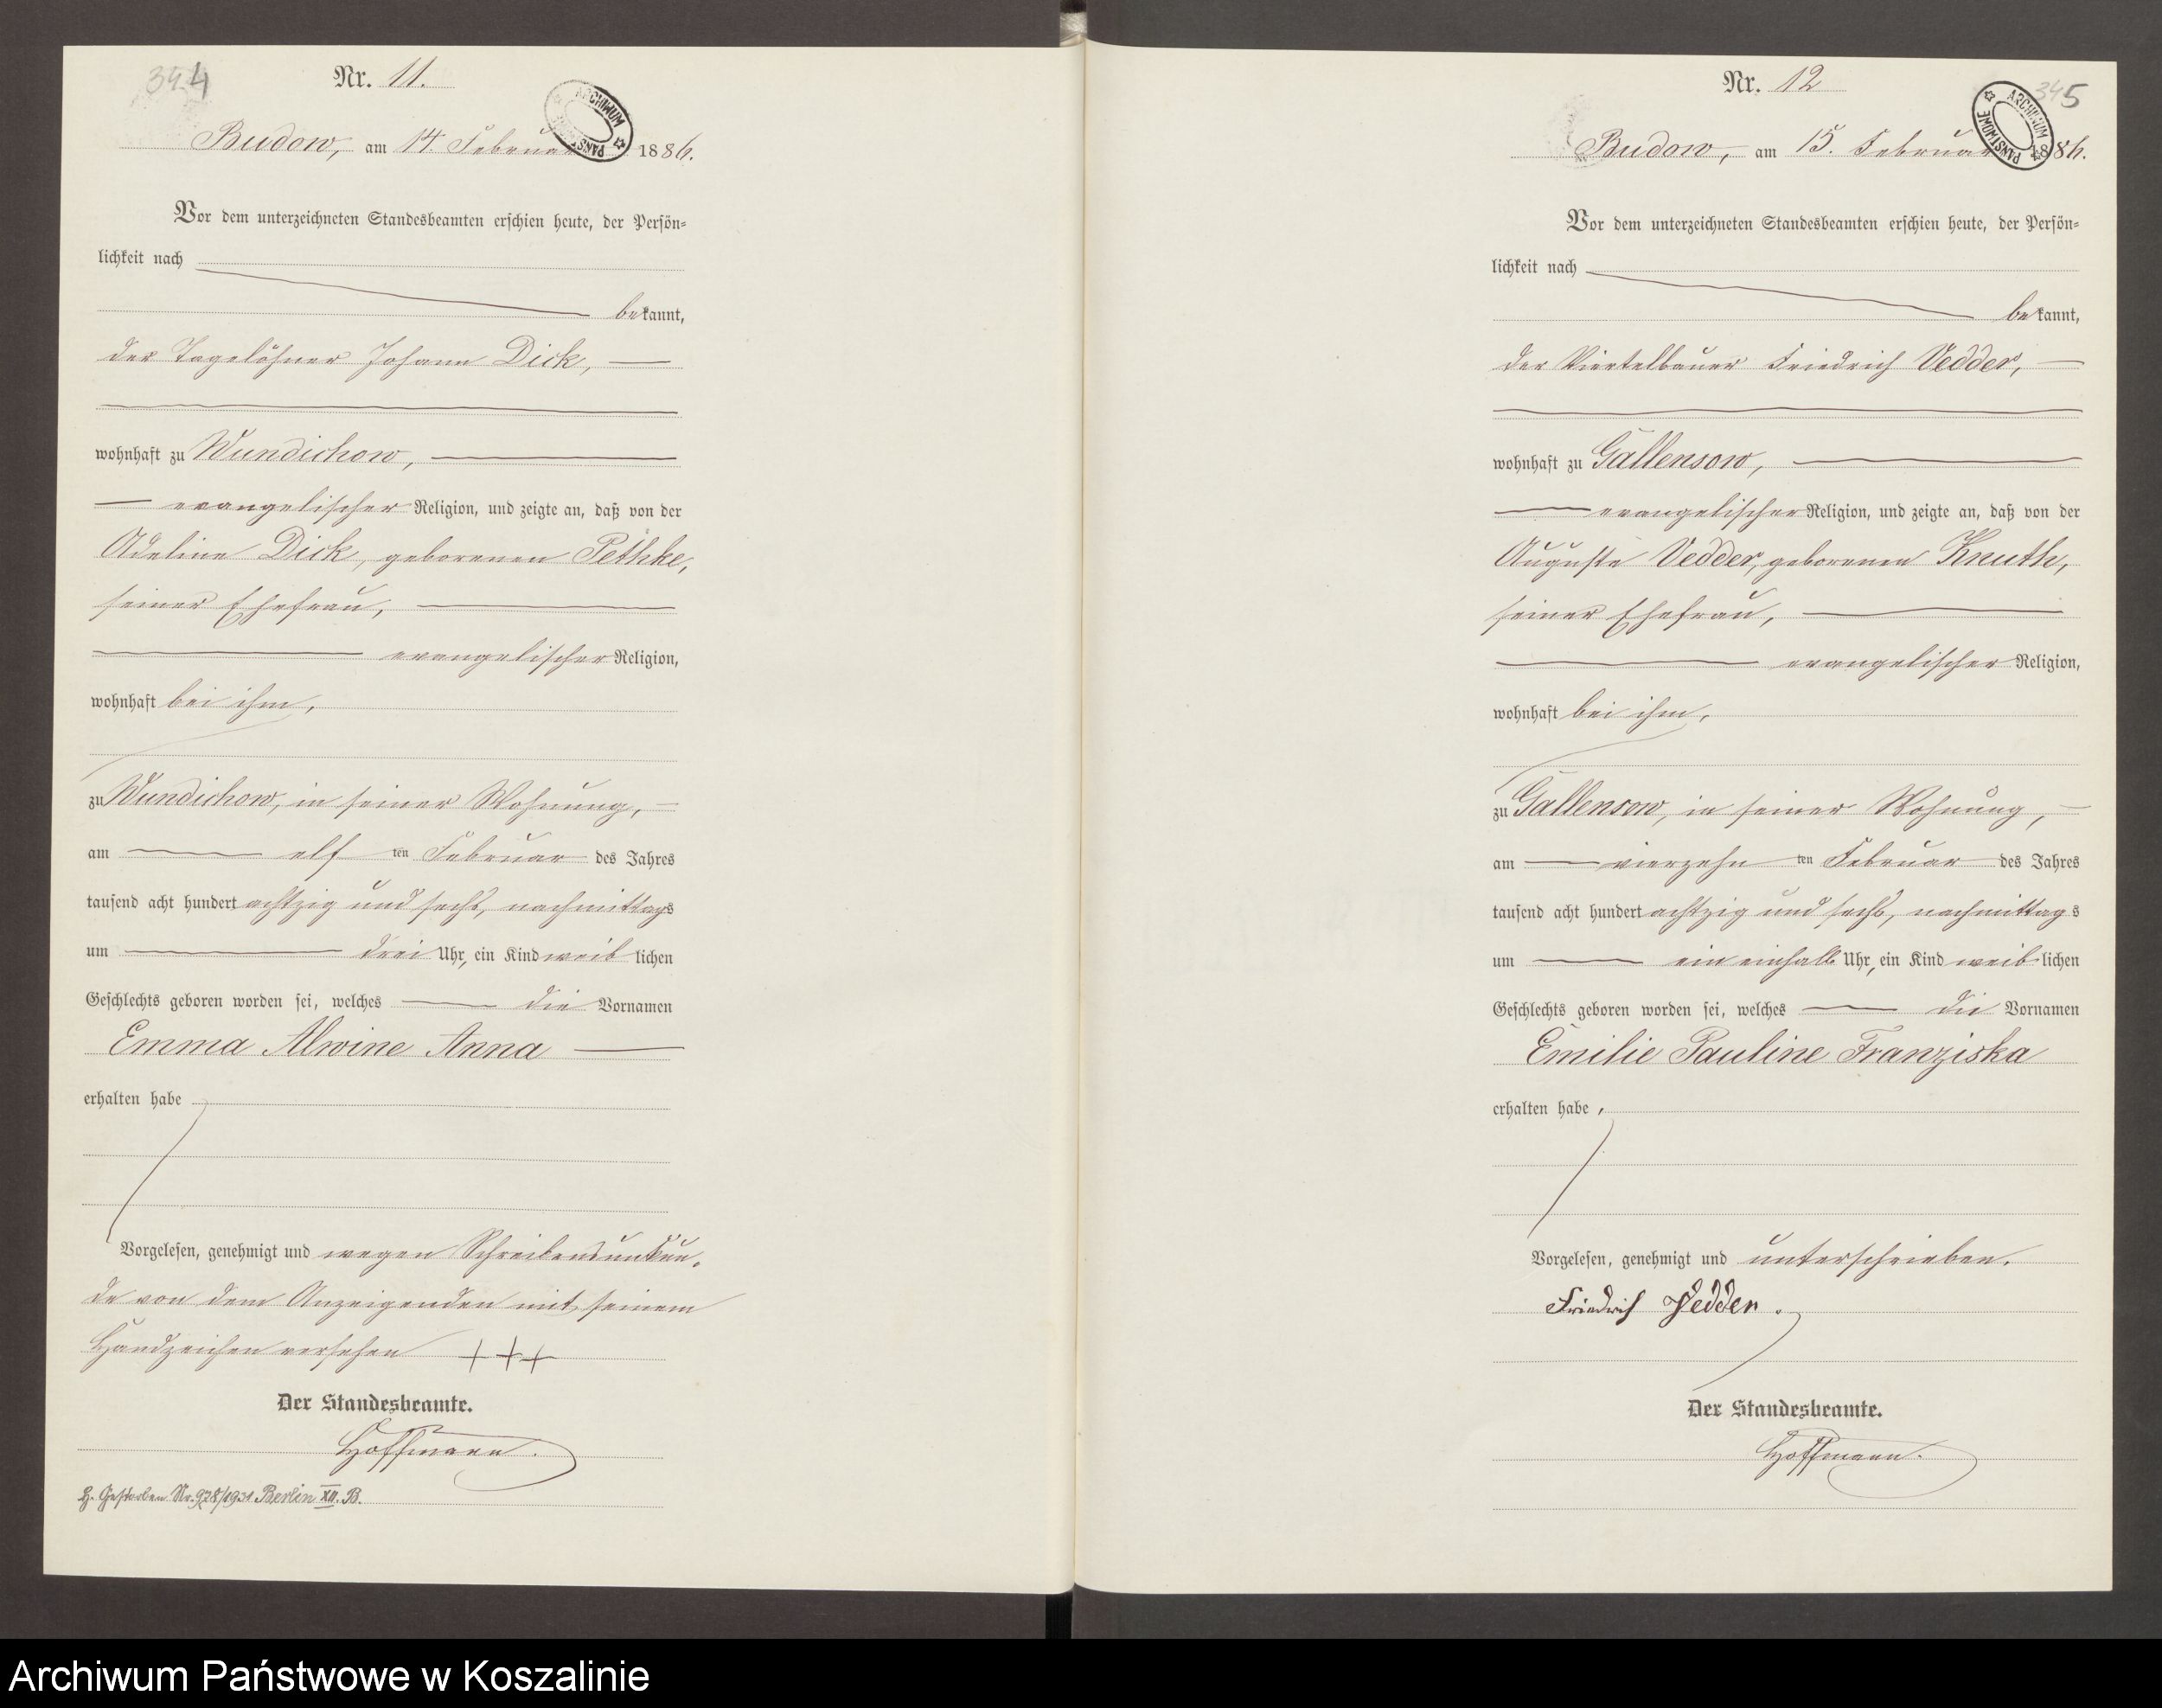 344
Nr. 11.
ARCHIWUM PAŃSTWOWE
Budow, am 14 Februar 1886.
Vor dem unterzeichneten Standesbeamten erschien heute, der Persön-
lichkeit nach
bekannt,
der Tagelöhner Johann Dick,
wohnhaft zu Wundichow,
evangelischer Religion, und zeigte an, daß von der
Adeline Dick, geborenen Pethke,
seiner Ehefrau,
evangelischer Religion,
wohnhaft bei ihm,
zu Wundichow, in seiner Wohnung,
am elf ten Februar des Jahres
tausend acht hundert achtzig und sechs, nachmittags
um drei Uhr, ein Kind weiblichen
Geschlechts geboren worden sei, welches die Vornamen
Emma Alwine Anna
erhalten habe
Vorgelesen, genehmigt und wegen Schreibensunkun-
de von dem Anzeigenden mit seinem
Handzeichen versehen +++
Der Standesbeamte.
Hoffmann.
H. Gestorben Nr. 928/1931 Berlin XII. B.
345
Nr. 12
ARCHIWUM PAŃSTWOWE
Budow, am 15. Februar 1886.
Vor dem unterzeichneten Standesbeamten erschien heute, der Persön-
lichkeit nach
bekannt,
der Viertelbauer Friedrich Vedder,
wohnhaft zu Gallensow,
evangelischer Religion, und zeigte an, daß von der
Auguste Vedder, geborenen Knuth,
seiner Ehefrau,
evangelischer Religion,
wohnhaft bei ihm,
zu Gallensow, in seiner Wohnung,
am vierzehn ten Februar des Jahres
tausend acht hundert achtzig und sechs, nachmittags
um ein einhalb Uhr, ein Kind weiblichen
Geschlechts geboren worden sei, welches die Vornamen
Emilie Pauline Franziska
erhalten habe,
Vorgelesen, genehmigt und unterschrieben.
Friedrich Vedder.
Der Standesbeamte.
Hoffmann.
Archiwum Państwowe w Koszalinie